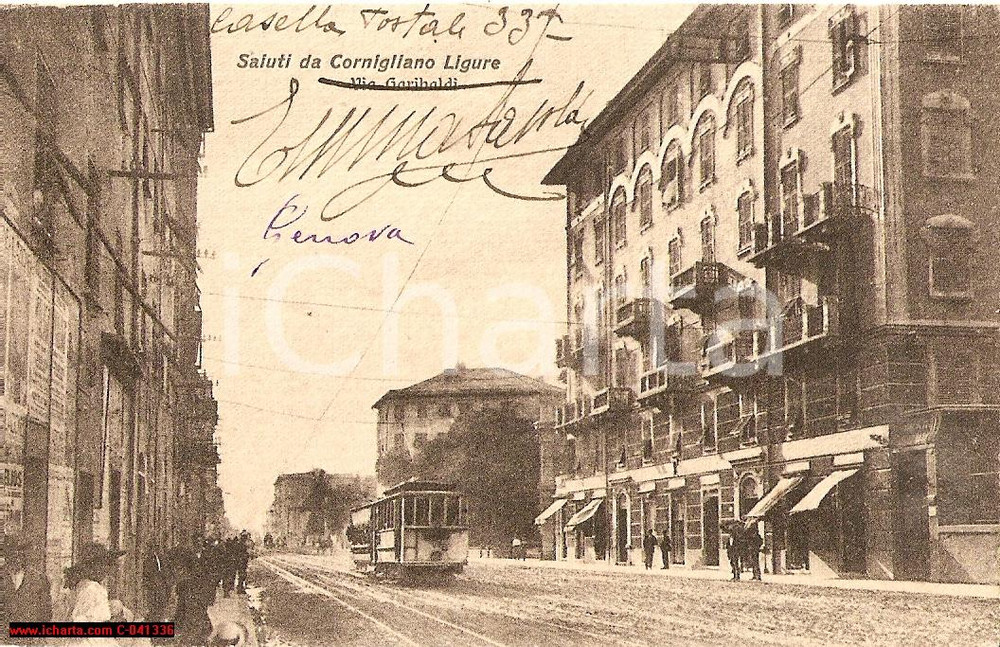 Casella Postale 337
Saluti da Cornigliano Ligure
Via Garibaldi
Genova
iCharta
www.icharta.com C-041336